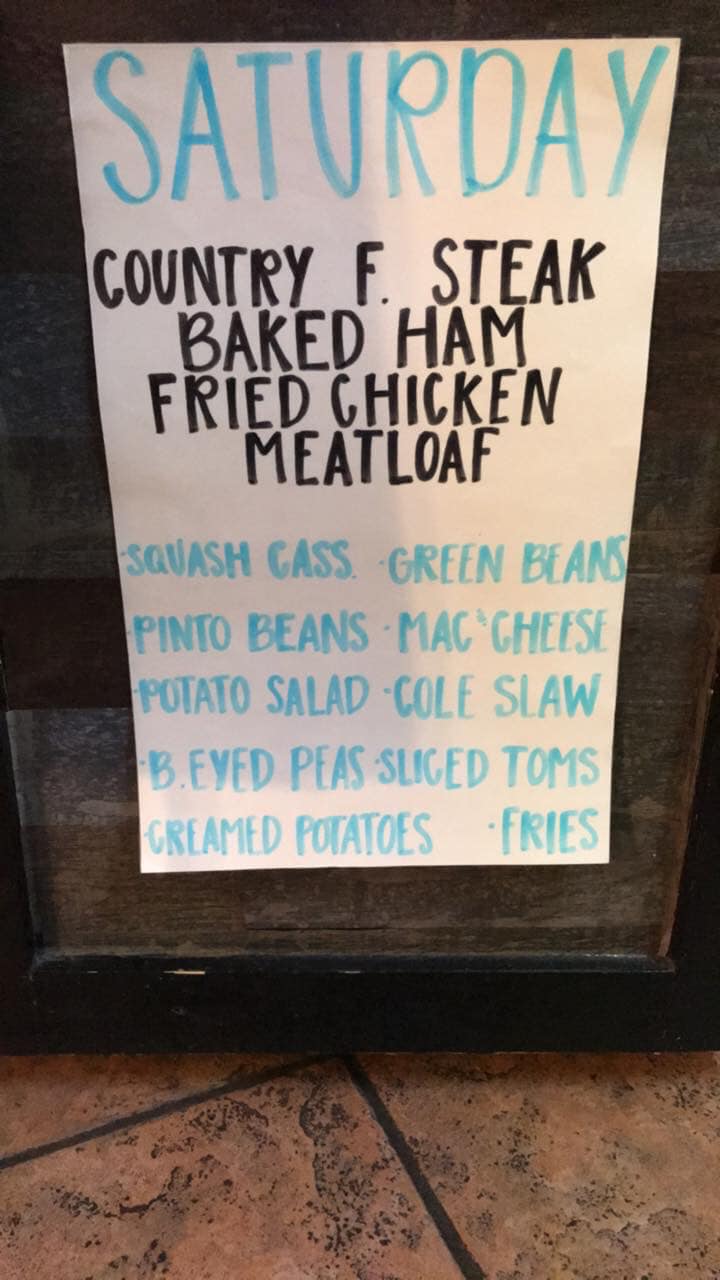 SATURDAY
COUNTRY F. STEAK
BAKED HAM
FRIED CHICKEN
MEATLOAF
·SQUASH CASS. ·GREEN BEANS
·PINTO BEANS ·MAC & CHEESE
·POTATO SALAD ·COLE SLAW
·B.EYED PEAS ·SLICED TOMS
·CREAMED POTATOES ·FRIES